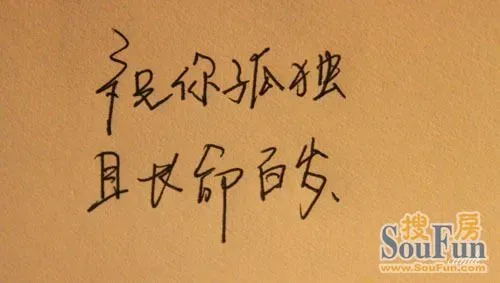 祝你孤独
且长命百岁、
搜房
SouFun
www.SouFun.com